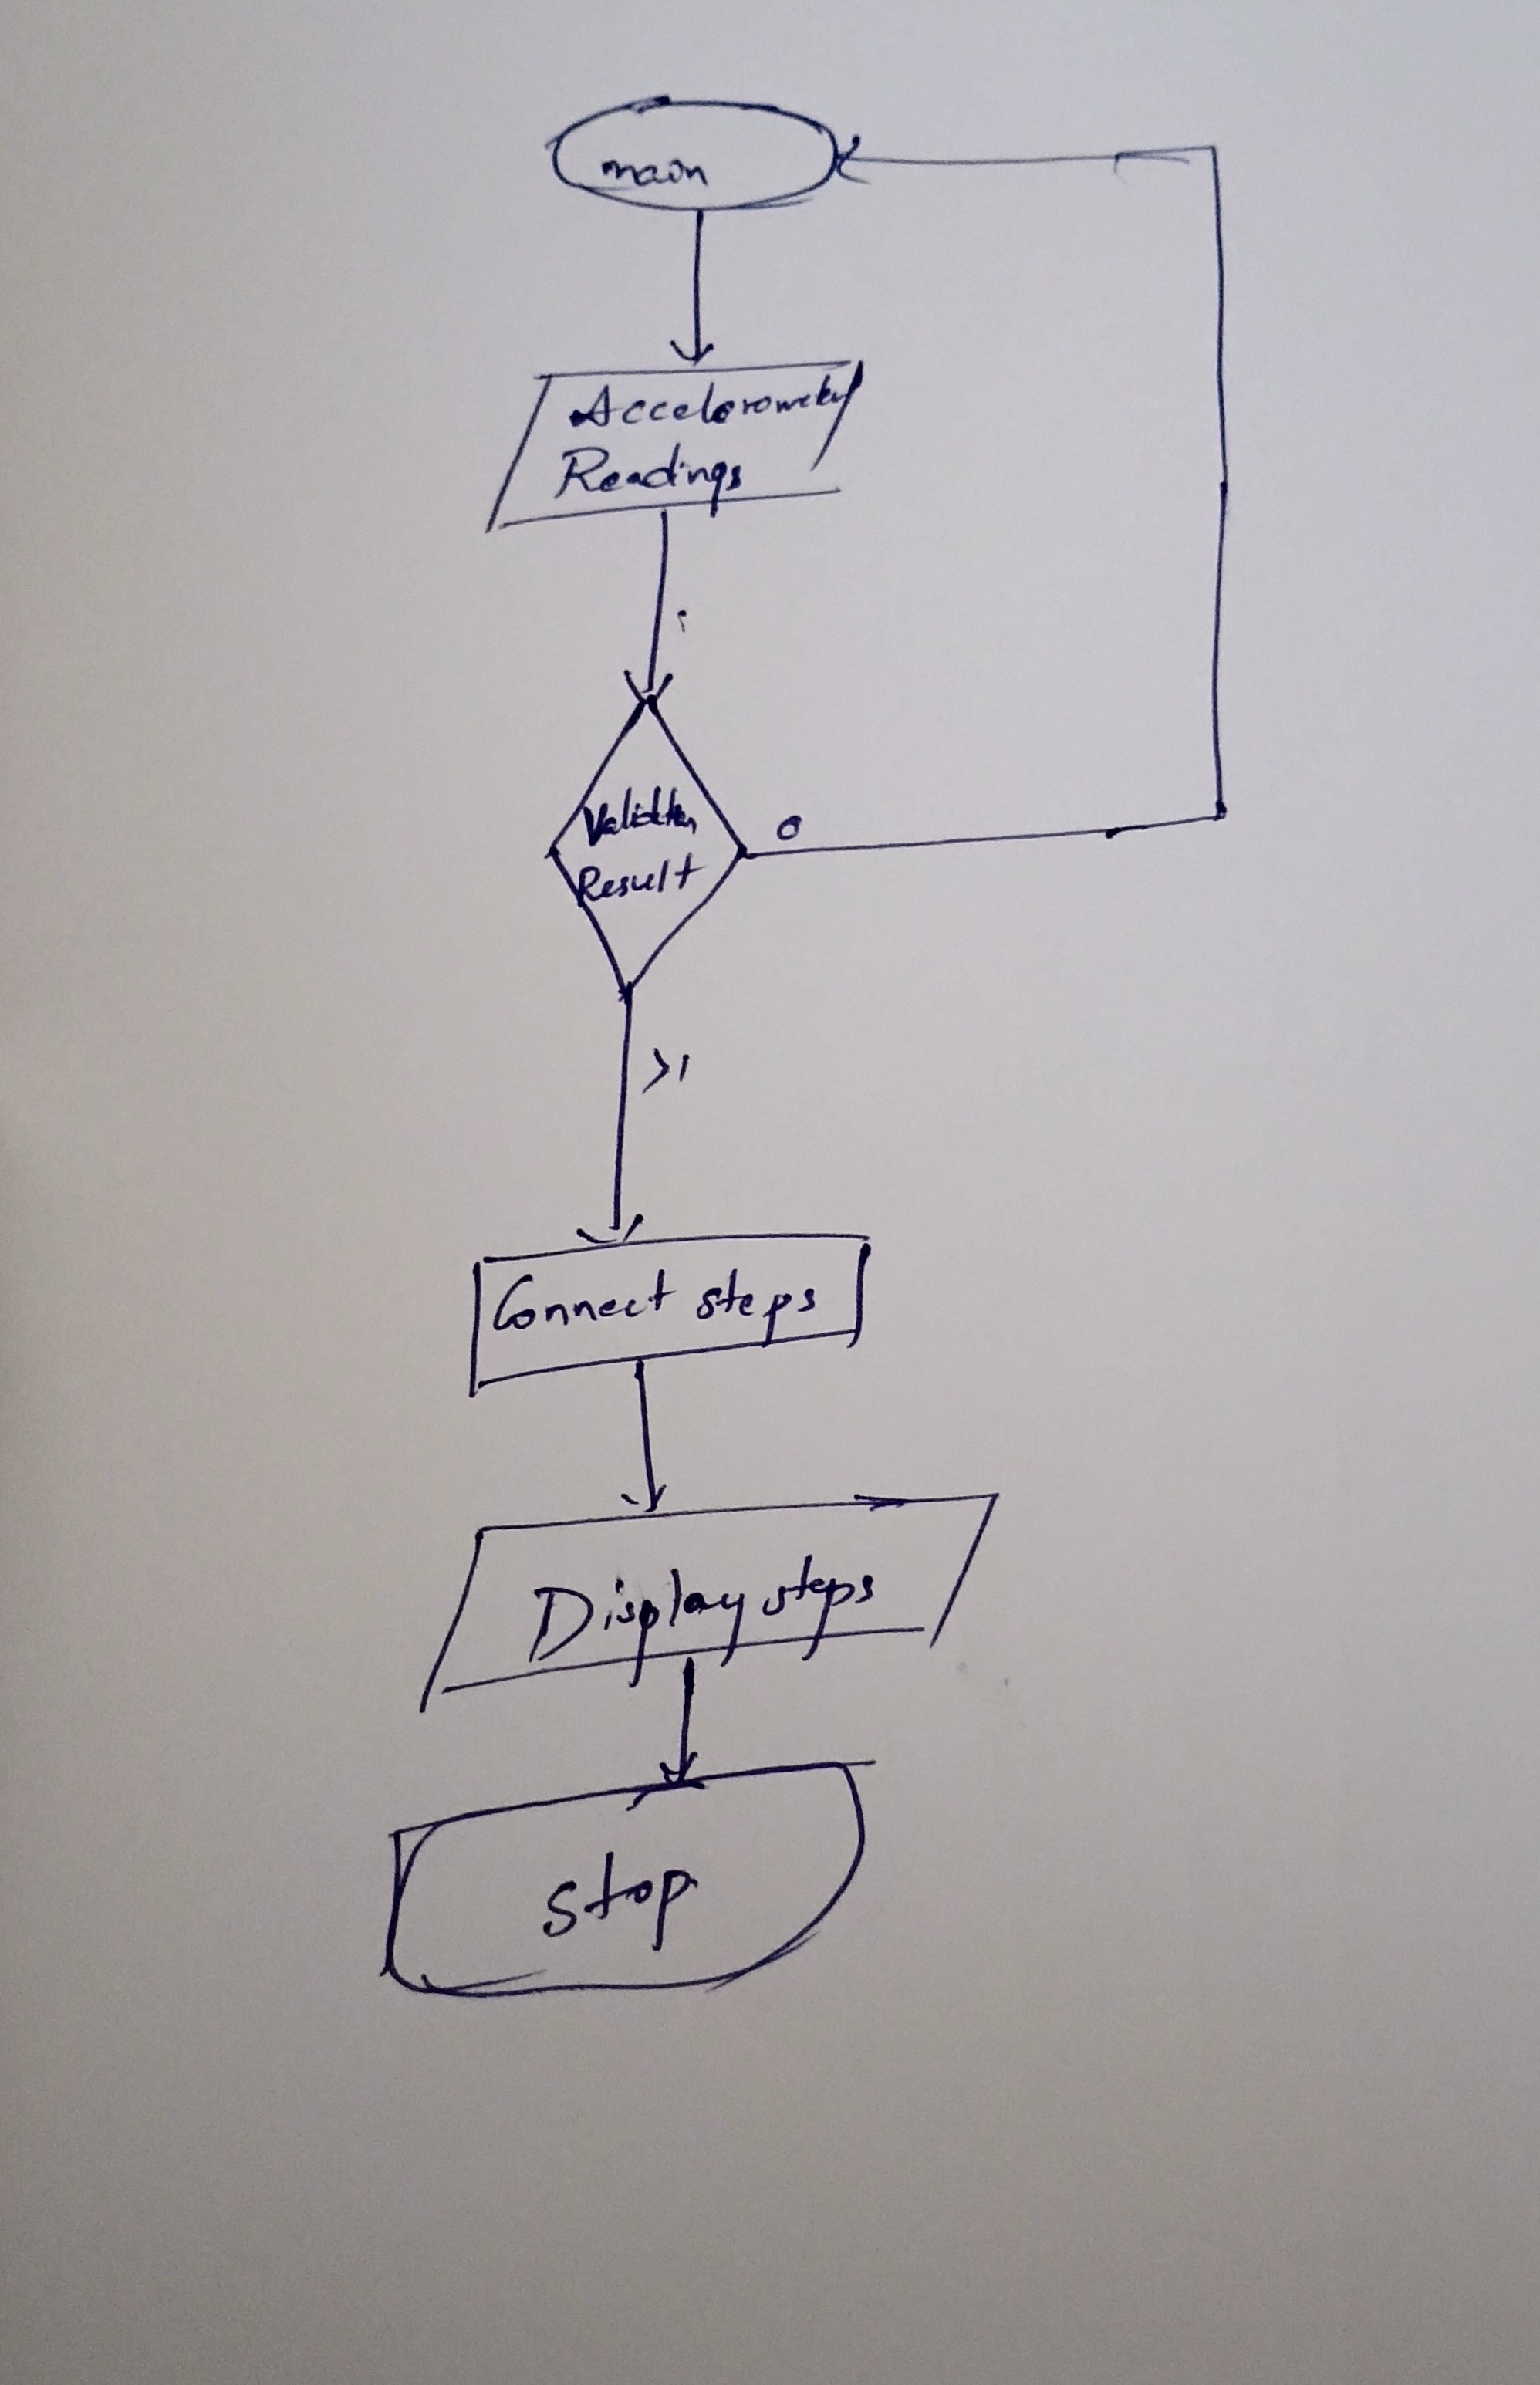 main
Accelerometer
Readings
Result
0
>1
Connect steps
Display steps
stop